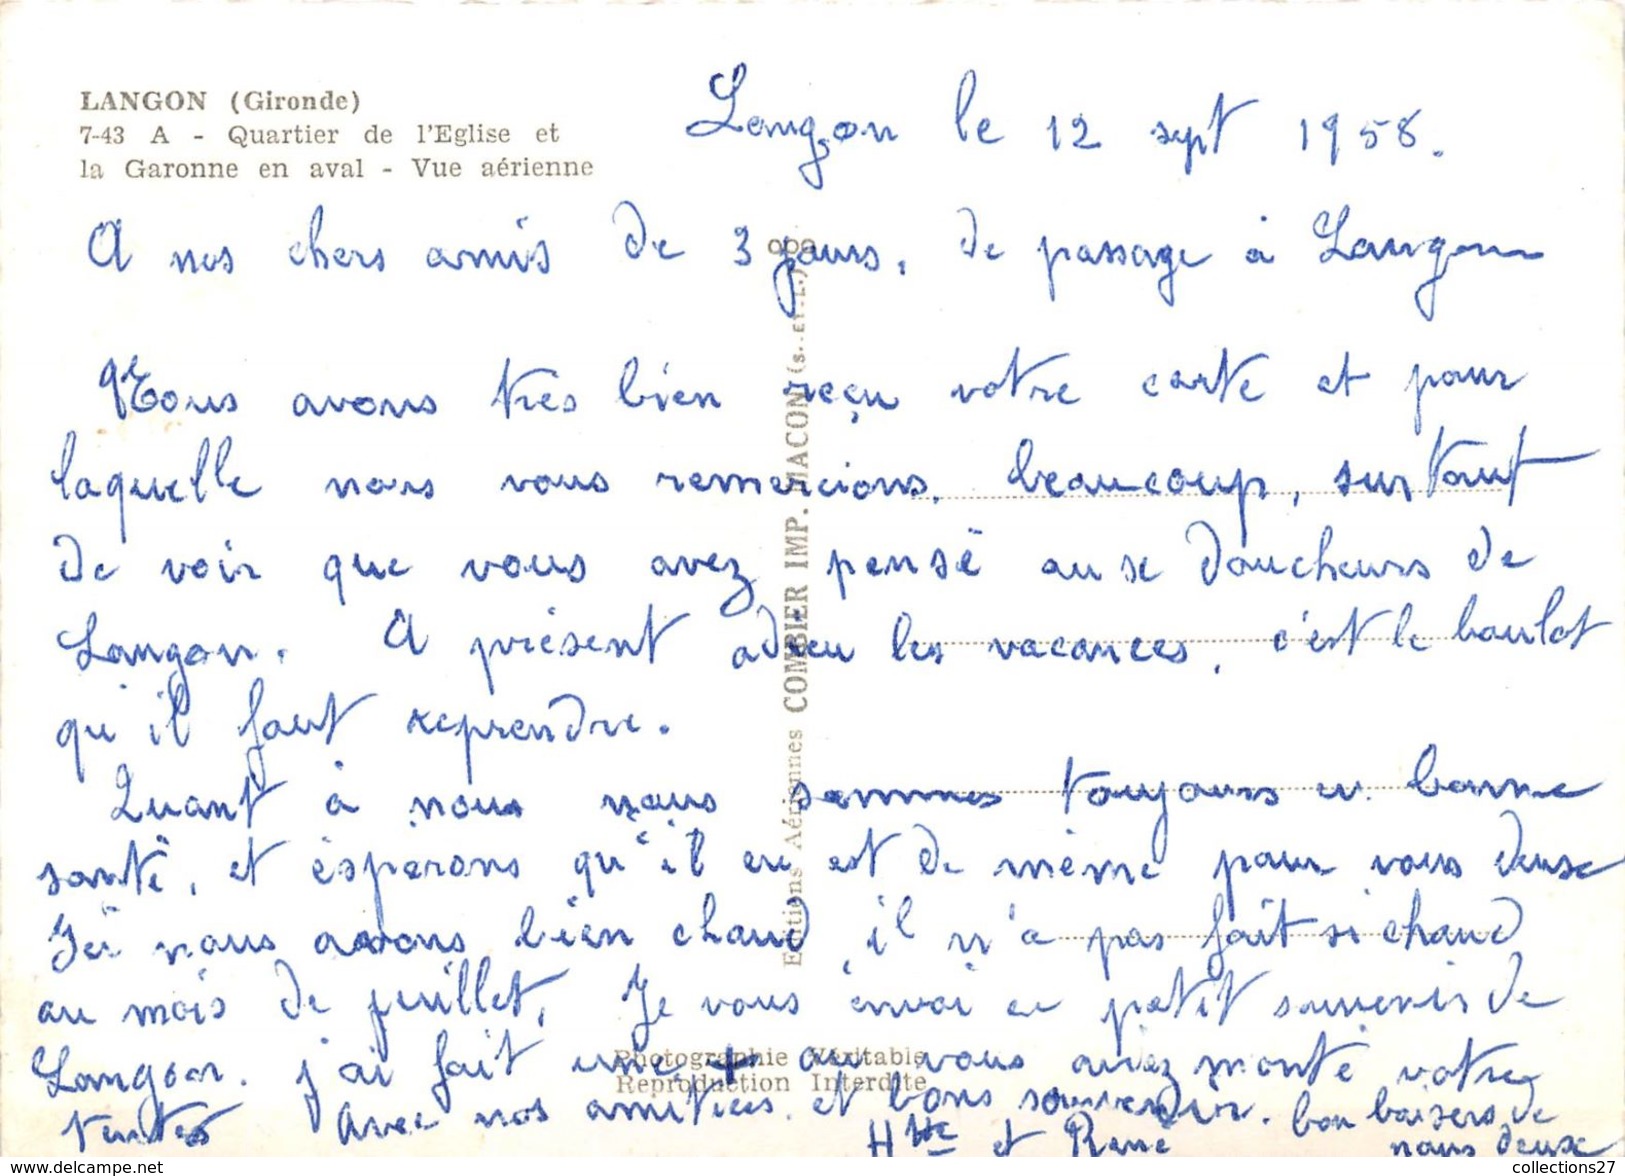 LANGON (Gironde)
7-43 A - Quartier de l'Eglise et
la Garonne en aval - Vue aérienne
Langon le 12 sept 1958.
A nos chers amis de 3 jours, de passage à Langon
Nous avons très bien reçu votre carte et pour
laquelle nous vous remercions, beaucoup, surtout
de voir que vous avez pensé aux doucheurs de
Langon. A présent adieu les vacances, c'est le boulot
qu'il faut reprendre.
Quant à nous nous sommes toujours en bonne
santé, et ésperons qu'il en est de même pour vous deux
Ici nous avons bien chaud, il n'a pas fait si chaud
au mois de juillet, Je vous envoi ce petit souvenir de
Langon. j'ai fait une + ou vous aviez monté votre
tente Avec nos amitiées. et bons souvenir. bon baisers de
nous deux
et René
Editions Aériennes COMBIER IMP. MACON (S.-ET-L.)
Photographie Véritable
Reproduction Interdite
www.collections27